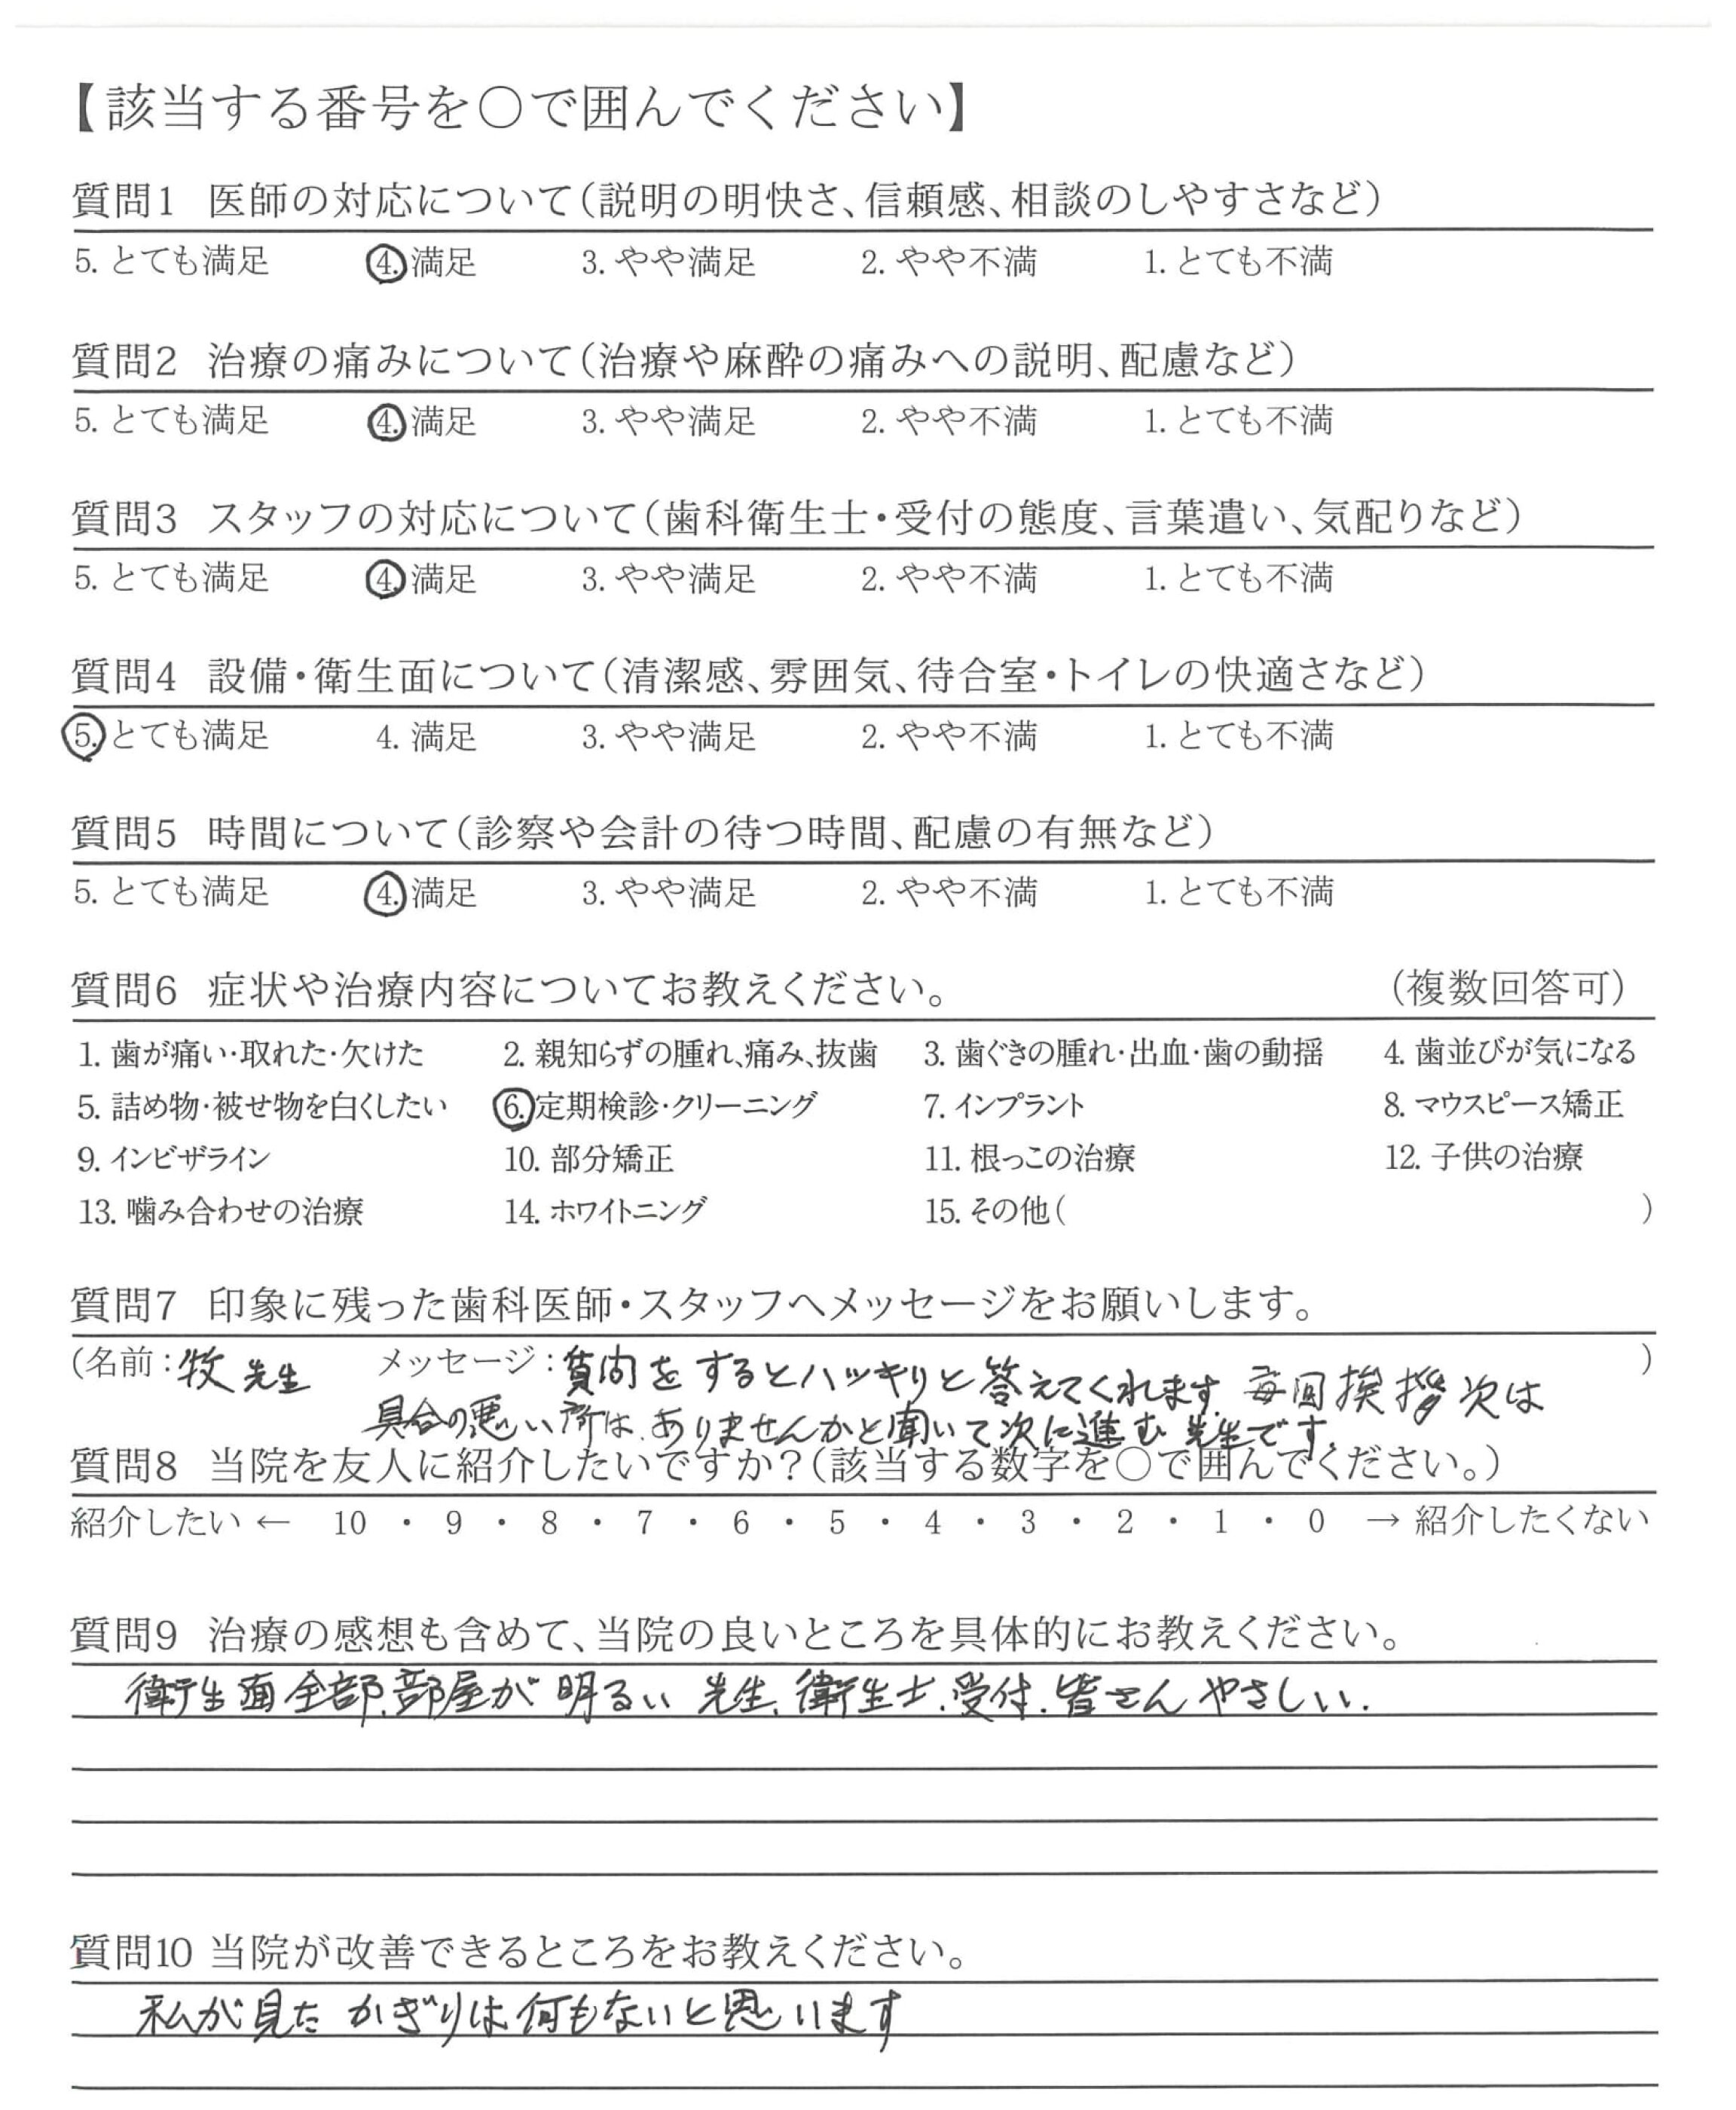 【該当する番号を○で囲んでください】
質問1 医師の対応について(説明の明快さ、信頼感、相談のしやすさなど)
5. とても満足 4. 満足 3. やや満足 2. やや不満 1. とても不満
質問2 治療の痛みについて(治療や麻酔の痛みへの説明、配慮など)
5. とても満足 4. 満足 3. やや満足 2. やや不満 1. とても不満
質問3 スタッフの対応について(歯科衛生士・受付の態度、言葉遣い、気配りなど)
5. とても満足 4. 満足 3. やや満足 2. やや不満 1. とても不満
質問4 設備・衛生面について(清潔感、雰囲気、待合室・トイレの快適さなど)
5. とても満足 4. 満足 3. やや満足 2. やや不満 1. とても不満
質問5 時間について(診察や会計の待つ時間、配慮の有無など)
5. とても満足 4. 満足 3. やや満足 2. やや不満 1. とても不満
質問6 症状や治療内容についてお教えください。 (複数回答可)
1. 歯が痛い・取れた・欠けた 2. 親知らずの腫れ、痛み、抜歯 3. 歯ぐきの腫れ・出血・歯の動揺 4. 歯並びが気になる
5. 詰め物・被せ物を白くしたい 6. 定期検診・クリーニング 7. インプラント 8. マウスピース矯正
9. インビザライン 10. 部分矯正 11. 根っこの治療 12. 子供の治療
13. 噛み合わせの治療 14. ホワイトニング 15. その他( )
質問7 印象に残った歯科医師・スタッフへメッセージをお願いします。
(名前:牧先生 メッセージ:質問をするとハッキリと答えてくれます。毎回挨拶次は )
具合の悪い所は、ありませんかと聞いて次に進む先生です。
質問8 当院を友人に紹介したいですか?(該当する数字を○で囲んでください。)
紹介したい ← 10 ・ 9 ・ 8 ・ 7 ・ 6 ・ 5 ・ 4 ・ 3 ・ 2 ・ 1 ・ 0 → 紹介したくない
質問9 治療の感想も含めて、当院の良いところを具体的にお教えください。
衛生面全部、部屋が明るい 先生、衛生士、受付、皆さんやさしい。
質問10 当院が改善できるところをお教えください。
私が見たかぎりは何もないと思います